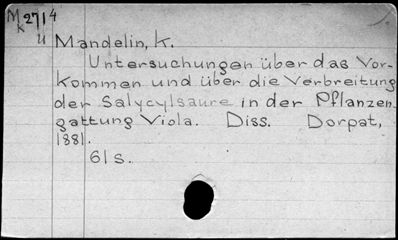 M 2714
k
u
Mandelin, K.
Untersuchungen über das Vor-
kommen und über die Verbreitung
der Salycylsäure in der Pflanzen
gattung Viola. Diss. Dorpat,
1881.
61 S.